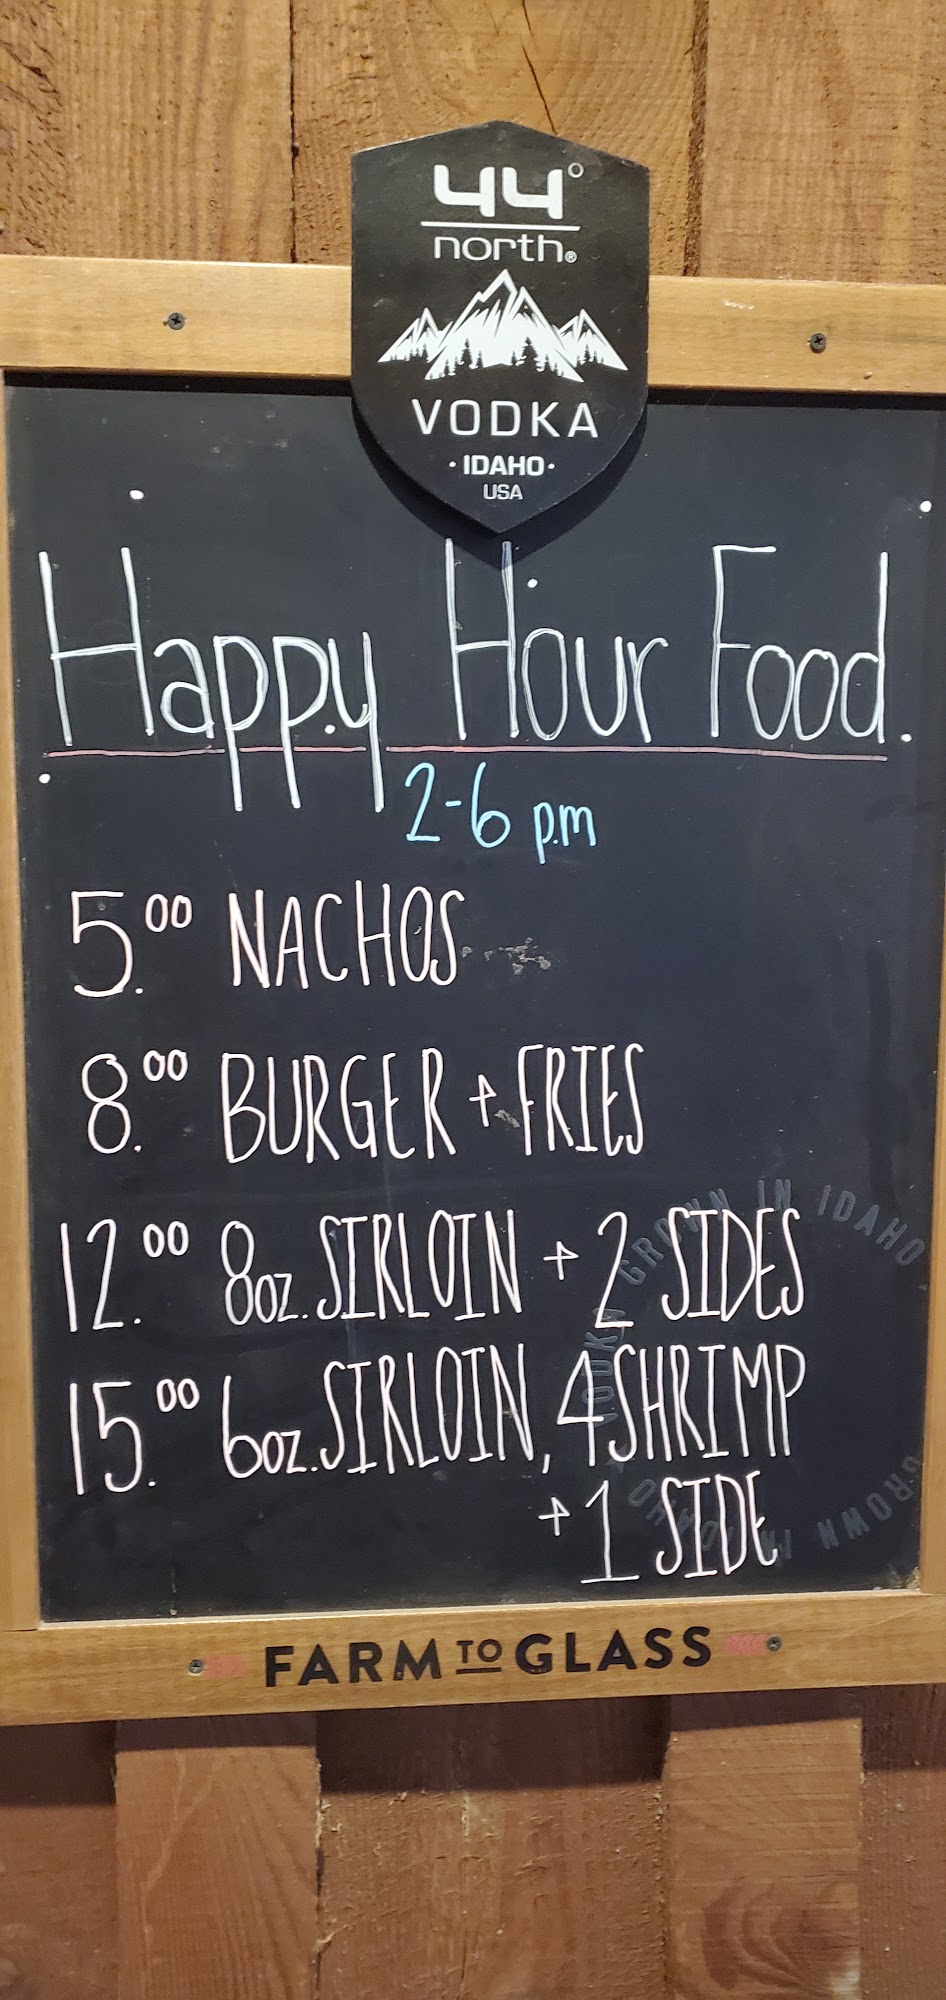 44°
north®
VODKA
·IDAHO·
USA
Happy Hour Food.
2-6 p.m
5.00 NACHOS
8.00 BURGER + FRIES
12.00 8oz. SIRLOIN + 2 SIDES
15.00 6oz. SIRLOIN, 4 SHRIMP
+ 1 SIDE
VODKA GROWN IN IDAHO
GROWN IN IDAHO
FARM TO GLASS